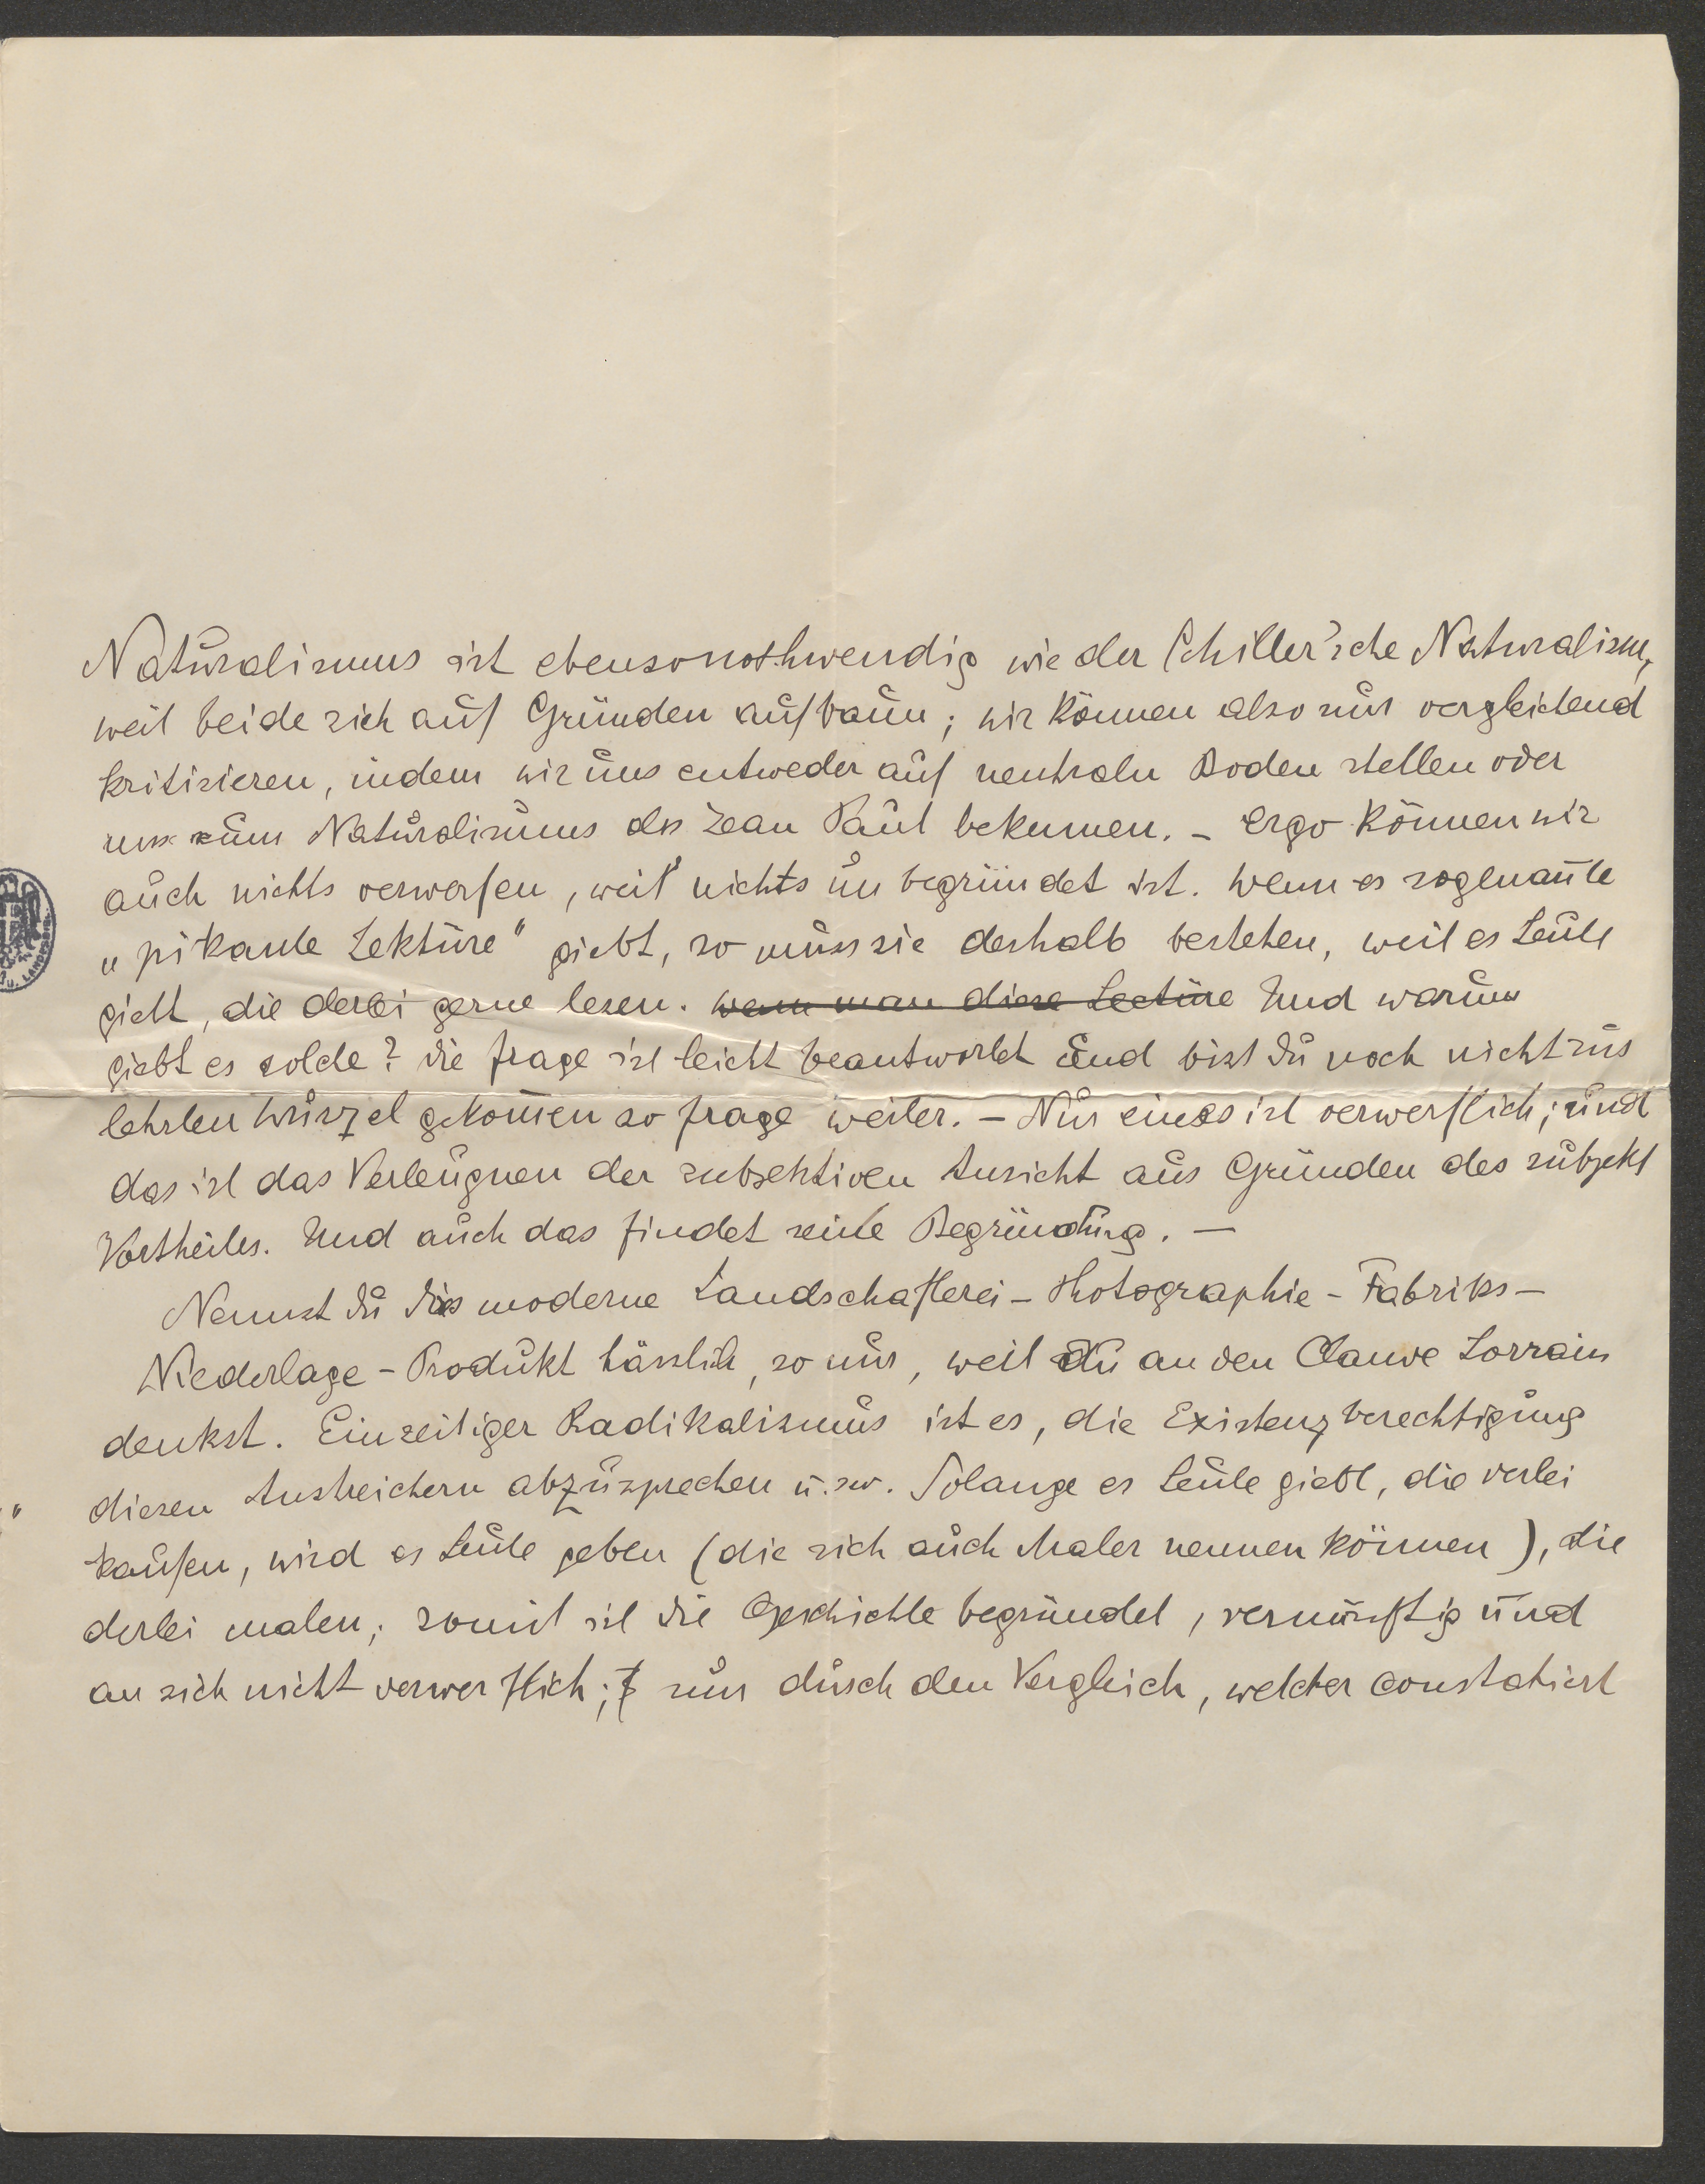 Naturalismus ist ebensonothwendig wie der Schiller'sche Naturalism,
weil beide sich auf Gründen aufbaun; wir können also nur vergleichend
kritisieren, indem wir uns entweder auf neutraln Boden stellen oder
uns zum Naturalismus des Jean Paul bekennen. – Ergo können wir
auch nichts verwerfen, weil nichts unbegründet ist. Wenn es sogenan̄te
„pikante Lektüre" giebt, so muss sie deshalb bestehen, weil es Leute
giebt, die derlei gerne lesen. wenn man diese Lectüre Und warum
giebt es solche? Die Frage ist leicht beantwortet und bist Du noch nicht zur
lehzten Wurzel gekom̄en so frage weiter. – Nur eines ist verwerflich; und
das ist das Verleugnen der subjektiven Ansicht aus Gründen des subjekt
Vortheiles. Und auch das findet seine Begründung. –
Nennst Du dies moderne Landschafterei-Photographie-Fabriks-
Niederlage-Produkt hässlich, so nur, weil Du an den Claude Lorrain
denkst. Einseitiger Radikalismus ist es, die Existenzberechtigung
diesen Anstreichern abzusprechen u.sw. Solange es Leute giebt, die derlei
kaufen, wird es Leute geben (die sich auch Maler nennen können), die
derlei malen; somit ist die Geschichte begründet, vernünftig und
an sich nicht verwerflich; nur durch den Vergleich, welcher constatiert